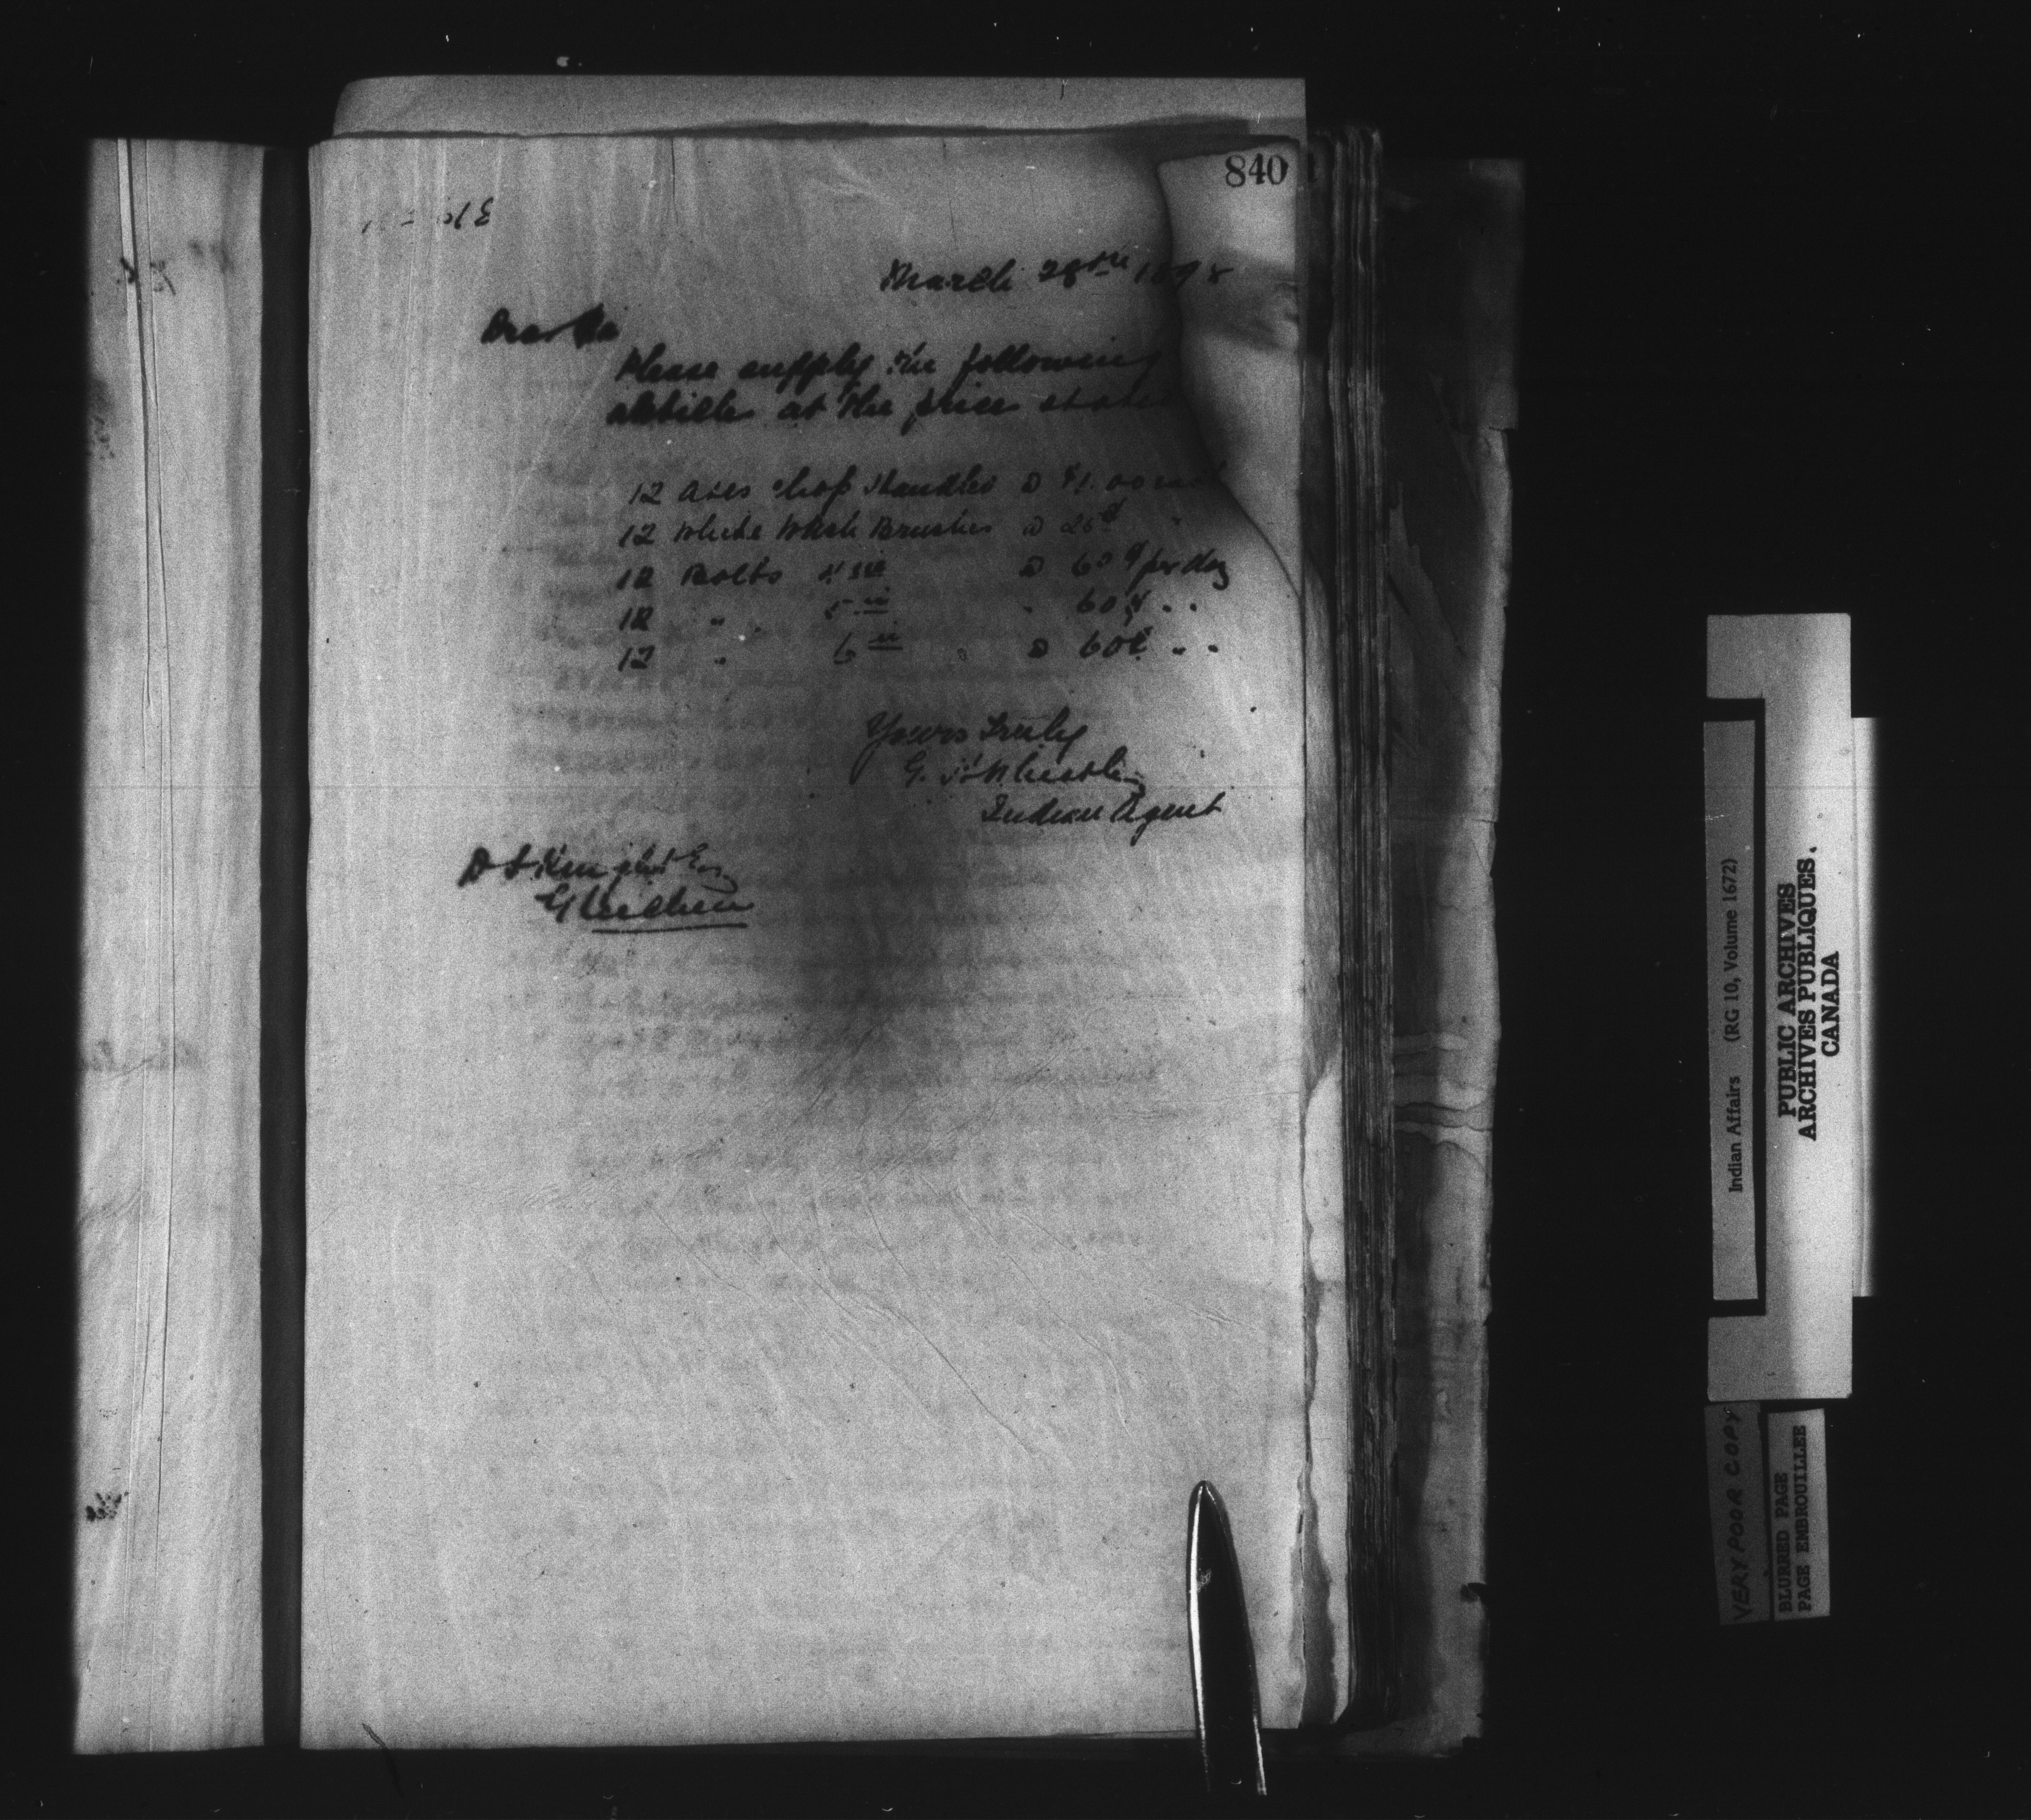 840
March 28th 1898
Dear Sir
Please supply the following
articles at the prices
12 Axes chop Handles @ $1.00
12 White Wash Brushes @ 25¢ "
12 Bolts 4 in @ 60¢ per doz
12 " 5 in " 60¢ " "
12 " 6 in @ 60¢ " "
Yours Truly
G. H. Wheatley
Indian Agent
Esq
Gleichen
Indian Affairs (RG 10, Volume 1672)
PUBLIC ARCHIVES
ARCHIVES PUBLIQUES.
CANADA
VERY POOR COPY
BLURRED PAGE
PAGE EMBROUILLEE